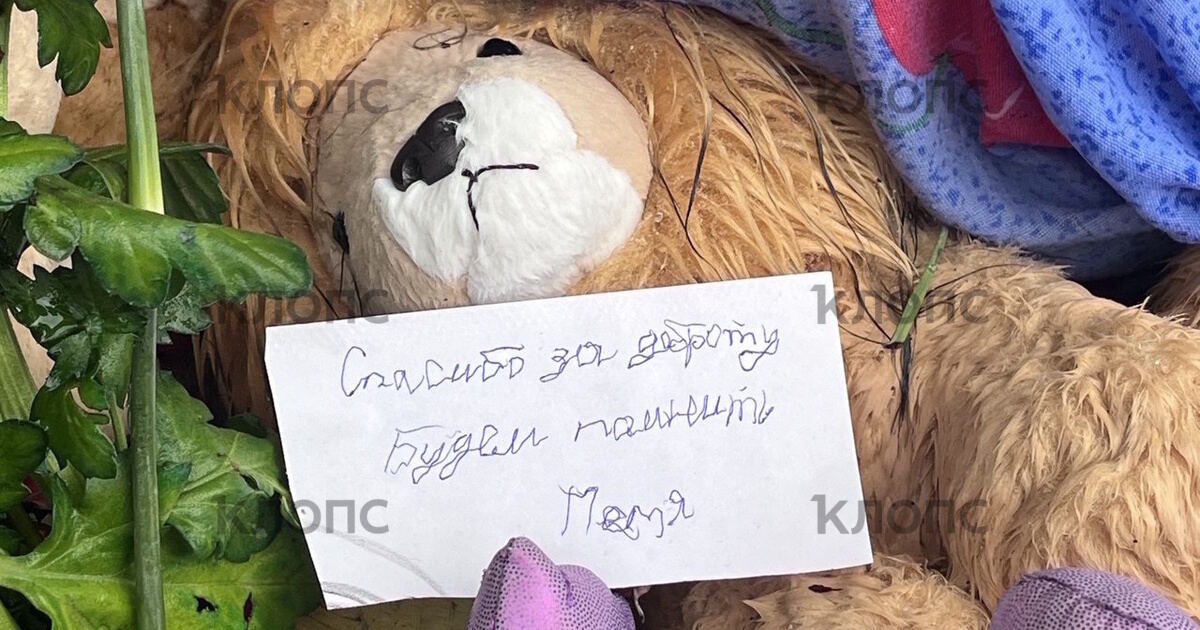 Спасибо за доброту
Будем помнить
клопс
клопс
клопс
клопс
клопс
клопс